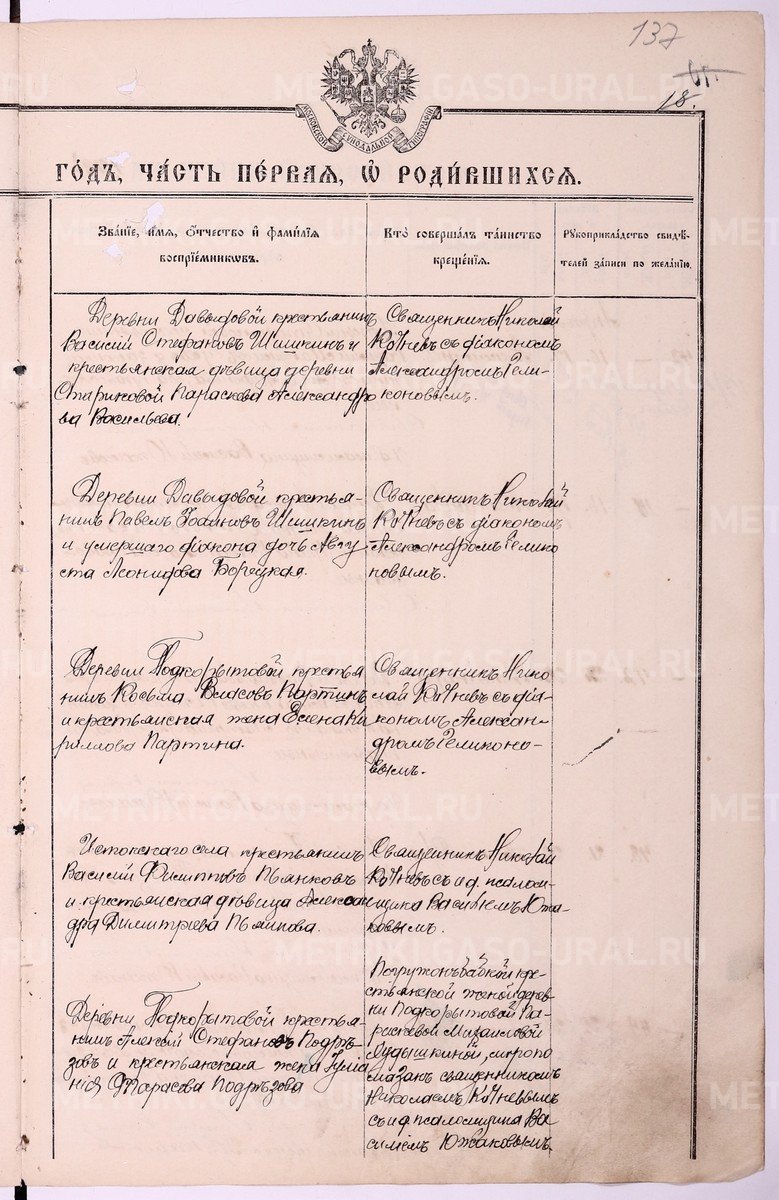 137
18.
МОСКОВСКОЙ СѴНОДАЛЬНОЙ ТИПОГРАФІИ
ГО́ДЪ, ЧА́СТЬ ПЕ́РВАЯ, Ѡ҆ РОДИ́ВШИХСЯ.
Зва́нїе, и҆́мя, ѻ҆́тчество и҆ фами́лїя
воспрїе́мниковъ.
Кто̀ соверша́лъ та́инство
креще́нїя.
Рꙋкоприкла́дство свидѣ́-
телей за́писи по жела́нїю.
Деревни Давыдовой крестьянинъ
Василій Стефановъ Шишкинъ и
крестьянская дѣвица деревни
Стариковой Параскева Александро
ва Васильева.
Священникъ Николай
Кочневъ съ діакономъ
Александромъ Гели-
коновымъ.
Деревни Давыдовой крестья-
нинъ Павелъ Іоанновъ Шишкинъ
и умершаго діакона дочь Авгу
ста Леонидова Борецкая.
Священникъ Николай
Кочневъ съ діакономъ
Александромъ Гелико
новымъ.
Деревни Подкорытовой крестья
нинъ Косьма Власовъ Партинъ
и крестьянская жена Елена Ки
риллова Партина.
Священникъ Нико
лай Кочневъ съ діа-
кономъ Алексан-
дромъ Геликоно-
вымъ.
Истокскаго села крестьянинъ
Василій Филипповъ Пьянковъ
и крестьянская дѣвица Алексан
дра Димитріева Пьянкова.
Священникъ Николай
Кочневъ съ и.д. псалом-
щика Василіемъ Южа-
ковымъ.
Деревни Подкорытовой крестья-
нинъ Алексій Стефановъ Подрѣ
зовъ и крестьянская жена Іулиа
нія Тарасова Подрѣзова
Погружонъ бабкой кре-
стьянской женой дерев
ни Подкорытовой Па-
раскевой Михаиловой
Лудышкиной, миропо
мазанъ священникомъ
Николаемъ Кочневымъ
съ и.д. псаломщика Ва
силіемъ Южаковымъ.
METRIKI.GASO-URAL.RU